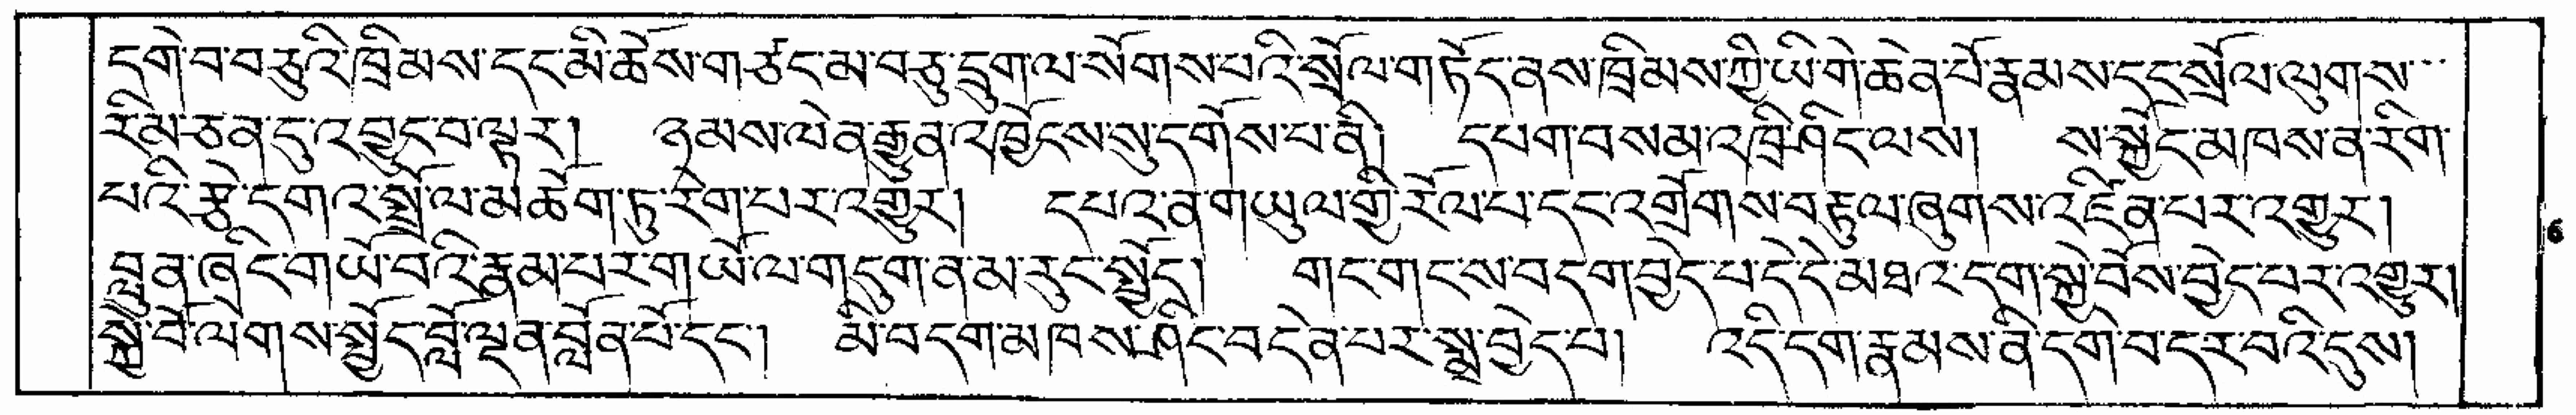 དགེ་བ་བཅུའི་ཁྲིམས་དང་མི་ཆོས་གཙང་མ་བཅུ་དྲུག་ལ་སོགས་པའི་སྲོལ་གཏོད་ནས་ཁྲིམས་ཀྱི་ཡི་གེ་ཆེན་པོ་རྣམས་དང་སྲོལ་ལུགས་་་
རིམ་ཅན་དུ་འབྱུང་བ་ལྟར། ཉམས་ལེན་རྒྱུན་འཁྱོངས་སུ་དགོས་པ་ནི། དཔག་བསམ་འཁྲི་ཤིང་ལས། ས་སྐྱོང་མཁས་ན་རིག་
པའི་རྩེ་དགའ་སྤྲོ་ལ་མཆོག་ཏུ་རེག་པར་འགྱུར། དཔའ་ན་གཡུལ་གྱི་རོལ་པ་དང་འགྲོགས་བརྟུལ་ཞུགས་འཛིན་པར་འགྱུར།
བླུན་ཞིང་གཡོ་བའི་རྣམ་པར་གཡོ་ལ་གདུག་ན་མ་རུང་སྤྱོད། གང་གང་ས་བདག་བྱེད་པ་དེ་དེ་མཐའ་དག་སྐྱེ་བོས་བྱེད་པར་འགྱུར།
སྐྱེ་བོ་ལེགས་སྤྱོད་བློ་ལྡན་བློན་པོ་དང་། མི་བདག་མཁས་ཤིང་བདེན་པར་སྨྲ་བྱེད་པ། འདི་དག་རྣམས་ནི་དགེ་བ་དར་བའི་དུས།
6